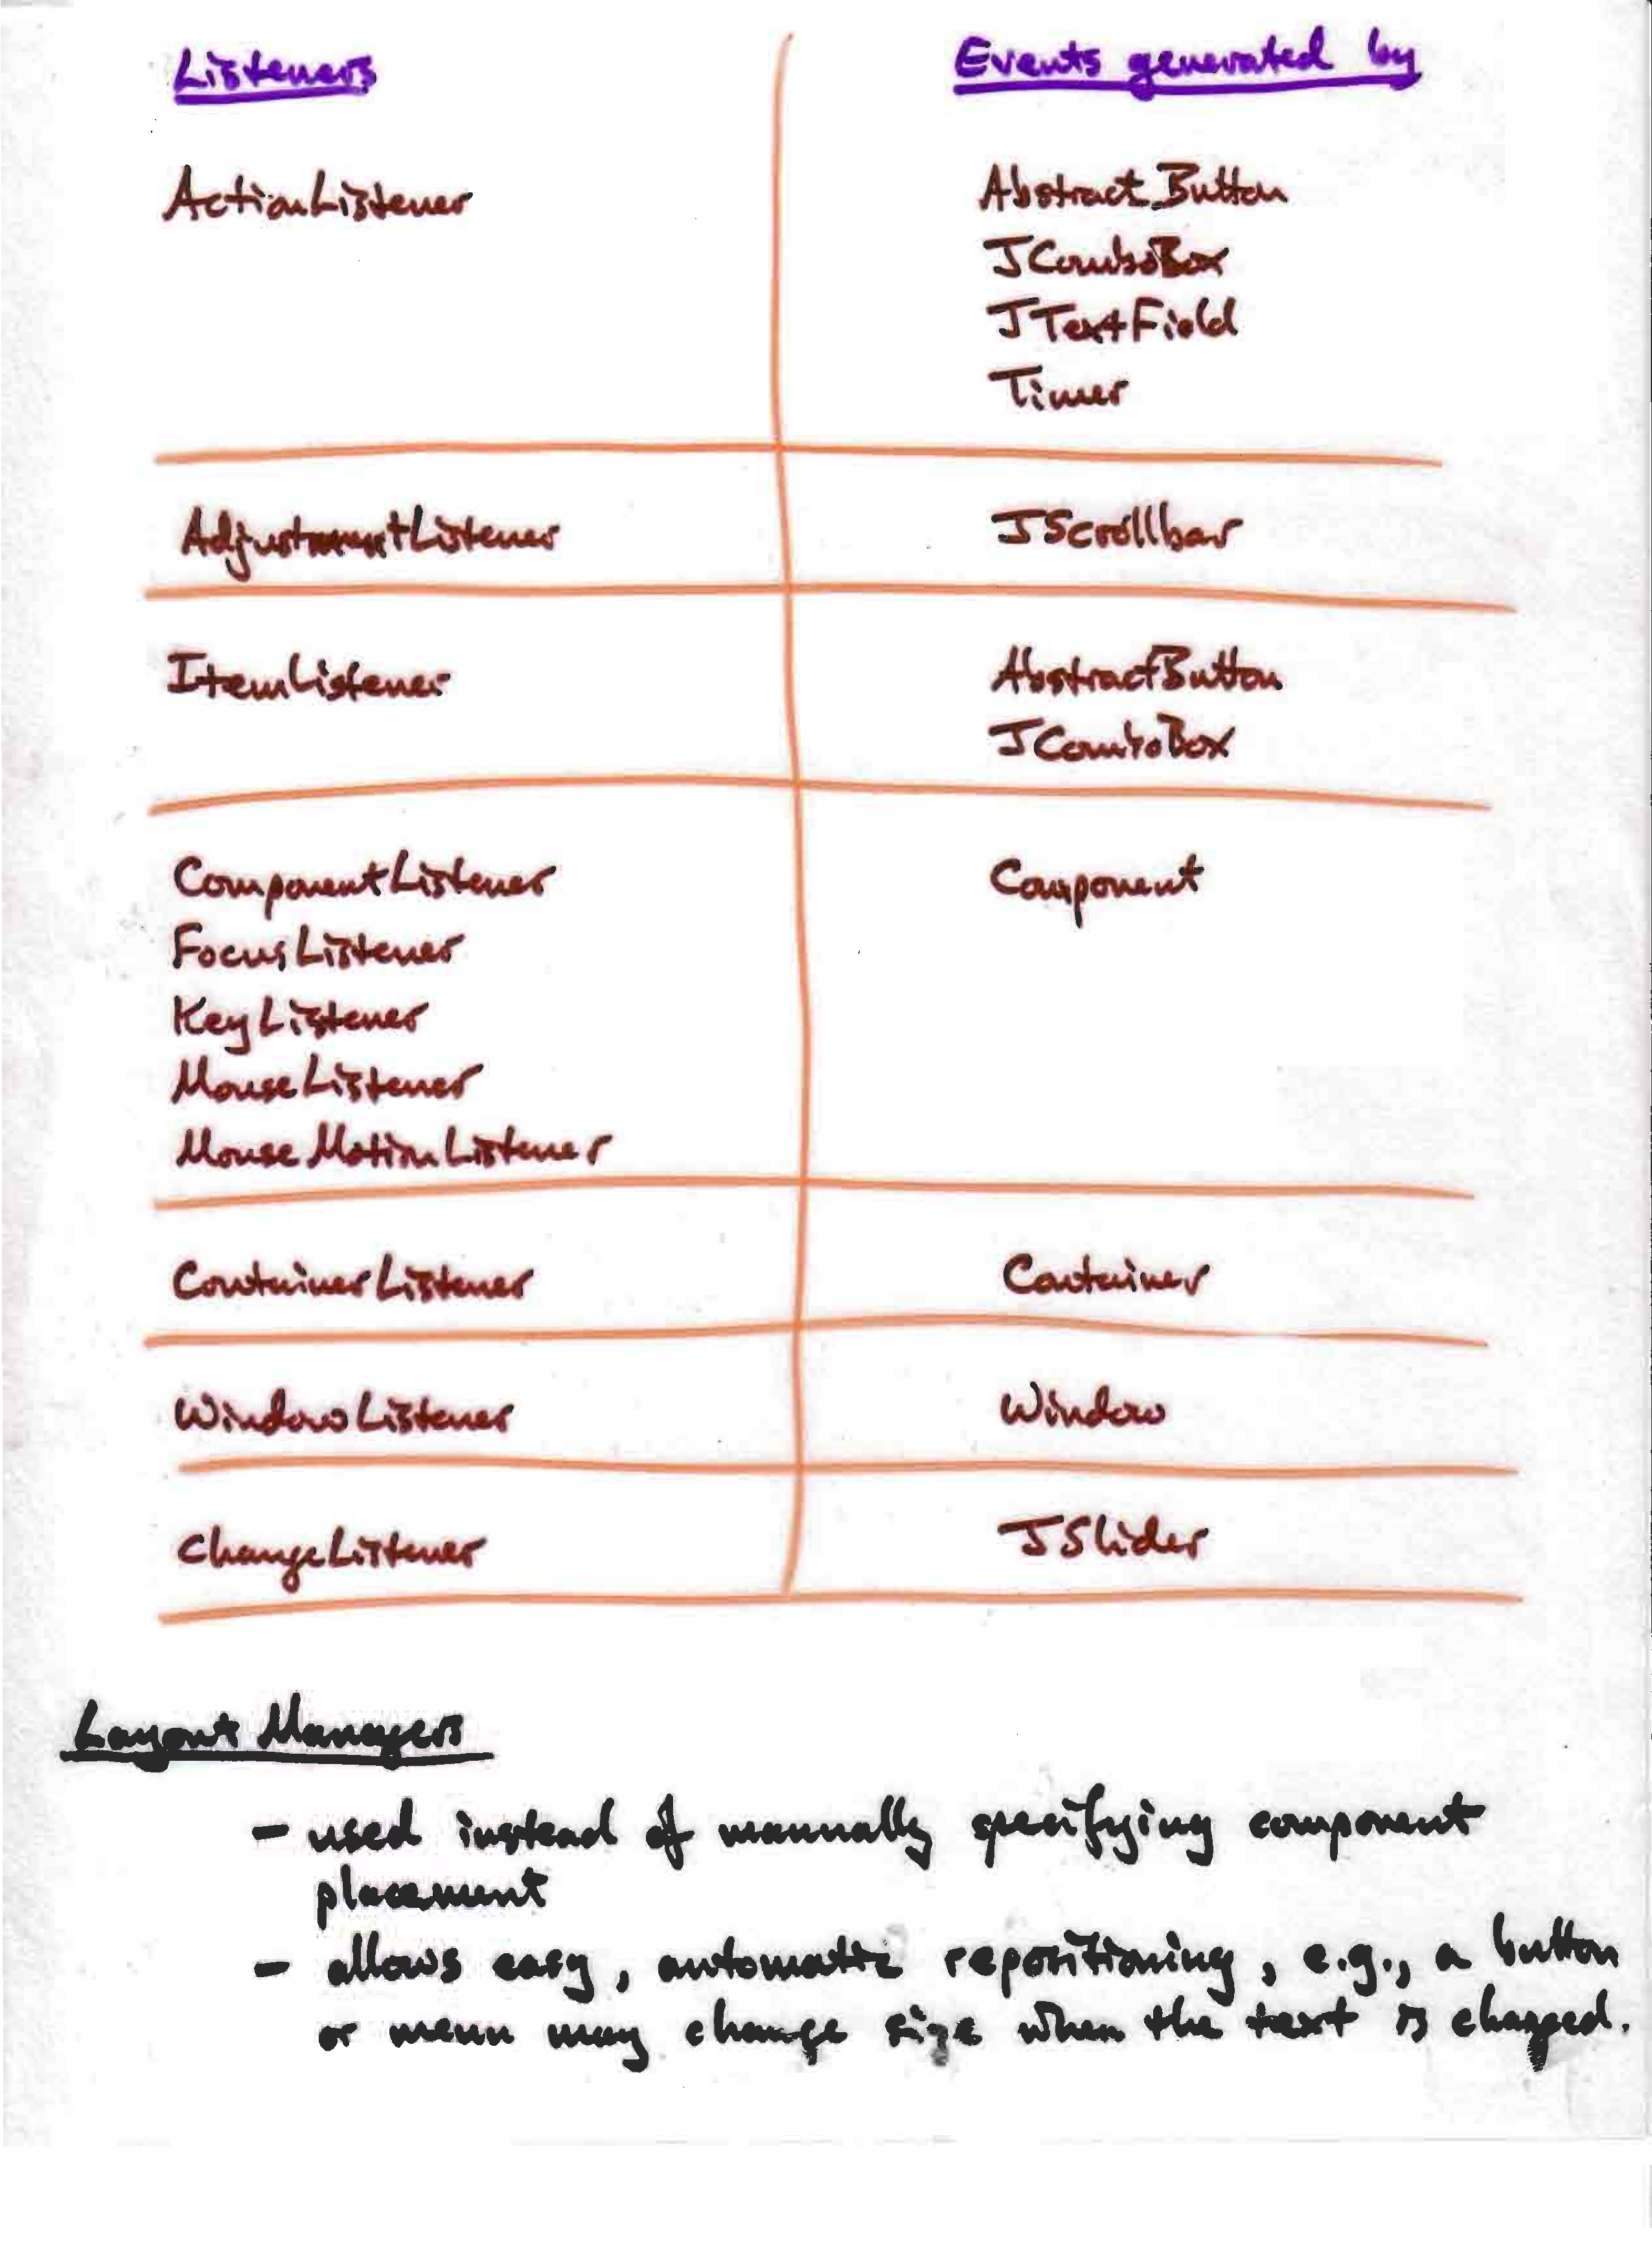 Listeners Events generated by
ActionListener AbstractButton
JComboBox
JTextField
Timer
AdjustmentListener JScrollbar
ItemListener AbstractButton
JComboBox
ComponentListener Component
FocusListener
KeyListener
MouseListener
MouseMotionListener
ContainerListener Container
WindowListener Window
ChangeListener JSlider
Layout Managers
- used instead of manually specifying component
placement
- allows easy, automatic repositioning, e.g., a button
or menu may change size when the text is changed.